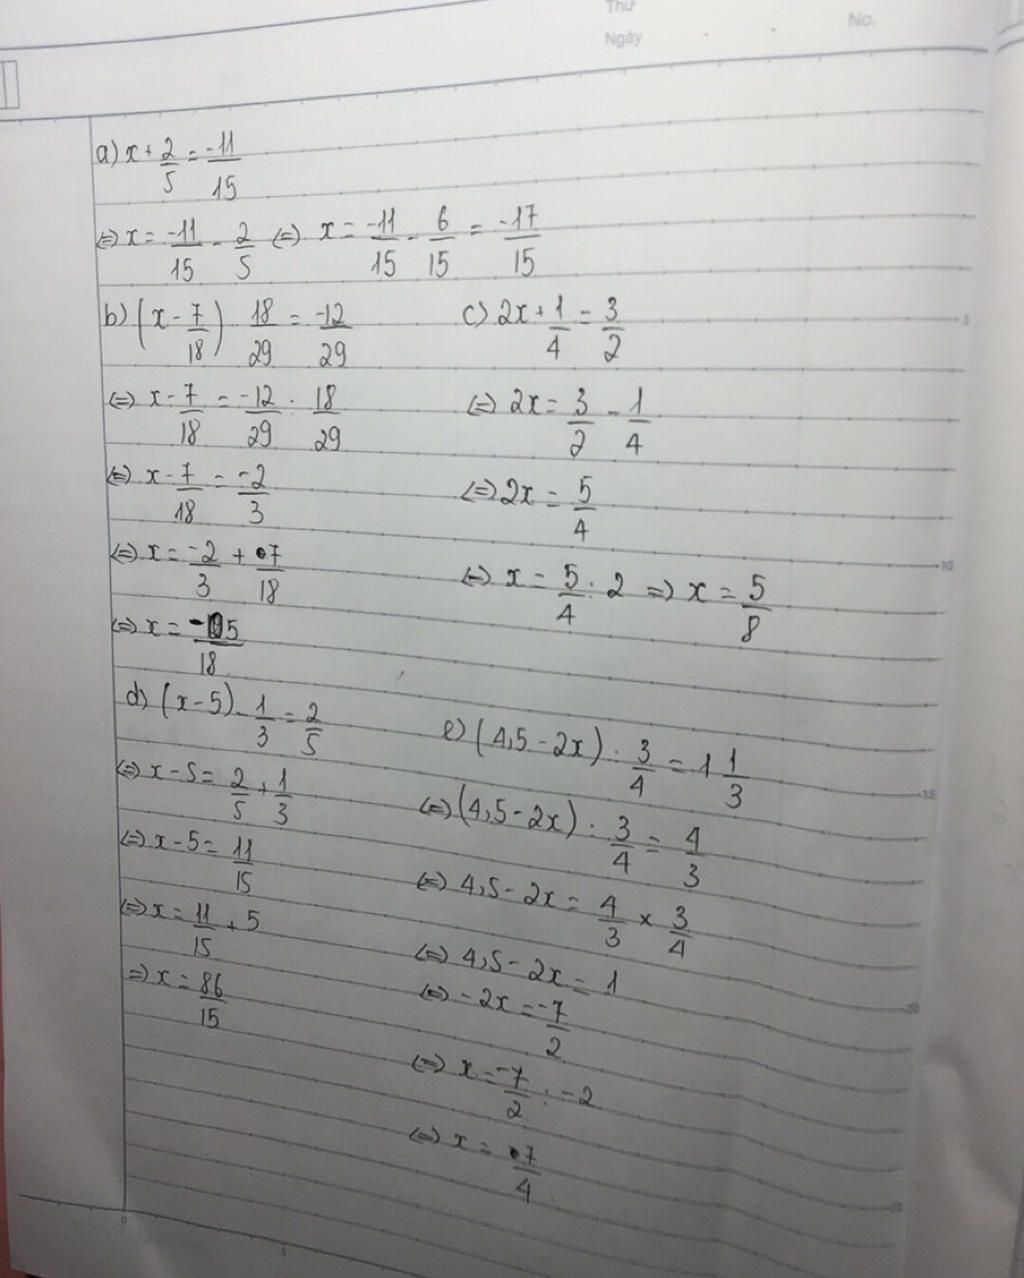 Thứ
No.
Ngày
a) x + 2/5 = -11/15
⇔ x = -11/15 - 2/5 ⇔ x = -11/15 - 6/15 = -17/15
b) (x - 7/18) . 18/29 = -12/29
⇔ x - 7/18 = -12/29 : 18/29
⇔ x - 7/18 = -2/3
⇔ x = -2/3 + 7/18
⇔ x = -5/18
c) 2x + 1/4 = 3/2
⇔ 2x = 3/2 - 1/4
⇔ 2x = 5/4
⇔ x = 5/4 : 2 ⇒ x = 5/8
d) (x - 5) - 1/3 = 2/5
⇔ x - 5 = 2/5 + 1/3
⇔ x - 5 = 11/15
⇔ x = 11/15 + 5
⇒ x = 86/15
e) (4,5 - 2x) : 3/4 = 1 1/3
⇔ (4,5 - 2x) : 3/4 = 4/3
⇔ 4,5 - 2x = 4/3 × 3/4
⇔ 4,5 - 2x = 1
⇔ -2x = -7/2
⇔ x = -7/2 : -2
⇔ x = 7/4
5
10
15
20
25
0
5